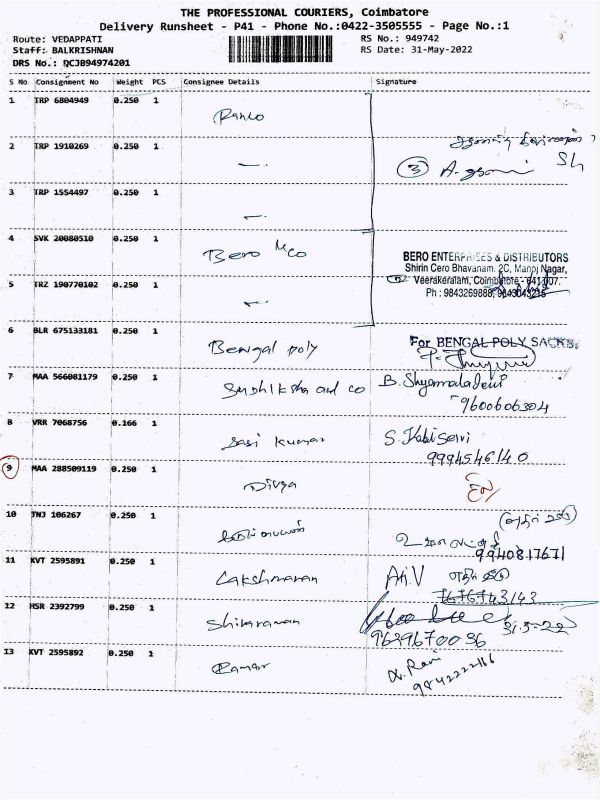 THE PROFESSIONAL COURIERS, Coimbatore
Delivery Runsheet - P41 - Phone No.:0422-3505555 - Page No.:1
Route: VEDAPPATI RS No.: 949742
Staff: BALKRISHNAN RS Date: 31-May-2022
DRS No.: DCJB94974201
S No Consignment No Weight PCS Consignee Details Signature
1 TRP 6804949 0.250 1
2 TRP 1910269 0.250 1
3
3 TRP 1554497 0.250 1
4 SVK 20080510 0.250 1 Bero & Co
BERO ENTERPRISES & DISTRIBUTORS
Shirin Cero Bhavanam. 2C, Manoj Nagar,
Veerakeralam, Coimbatore - 641007.
5 TRZ 190770102 0.250 1
Ph : 9843269888, 9843043215
6 BLR 675133181 0.250 1 Bengal poly For BENGAL POLY SACKS
7 MAA 566081179 0.250 1 Sudhiksha and co B. Shyamaladevi
9600606304
8 VRR 7068756 0.166 1 Sasi kumar
9994546140
9 MAA 288509119 0.250 1 Divya
10 TNJ 106267 0.250 1
9940817671
11 KVT 2595891 0.250 1 Lakshmanan
12 HSR 2392799 0.250 1 Shivaraman 31-5-22
9629670036
13 KVT 2595892 0.250 1 Raman
9842222166